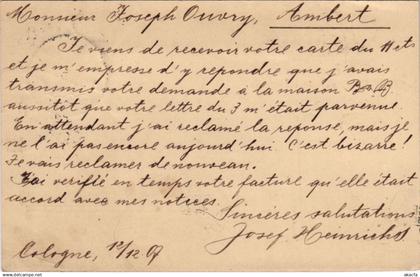 Monsieur Joseph Ouvry, Ambert
Je viens de recevoir votre carte du 11 cts
et je m'empresse d'y repondre que j'avais
transmis votre demande à la maison
aussitôt que votre lettre du 3 m'était parvenue.
En attendant j'ai reclamé la reponse, mais je
ne l'ai pas encore aujourd'hui C'est bizarre!
Je vais reclamer de nouveau.
J'ai verifié en temps votre facture qu'elle était
accord avec mes notices.
Sincères salutations
Josef Heinrichs
Cologne, 12/12 07